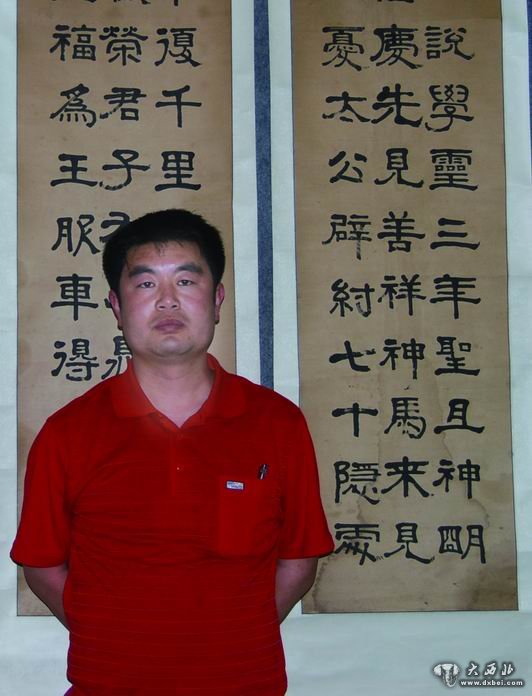 說學靈三年聖且神明
慶先見善祥神馬來見
憂太公辟紂七十隱處
復千里
榮君子
福為王服車得
大西北
www.dxbei.com